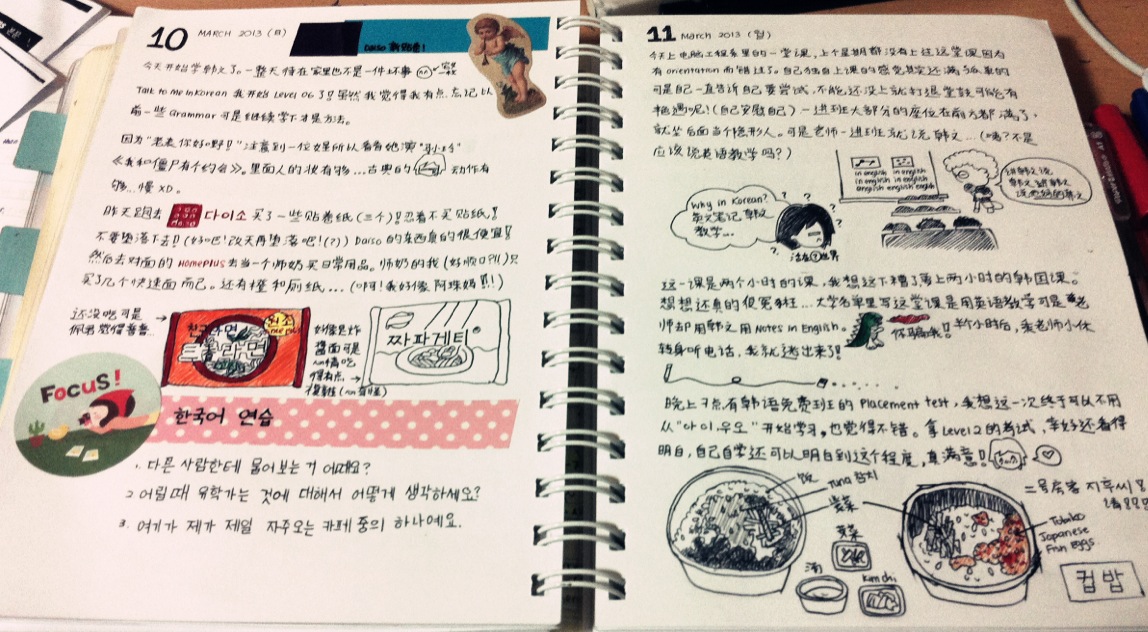 10 MARCH 2013 (日)
Daiso 新貼纸!
今天开始学韩文了。一整天待在家里也不是一件坏事
Talk to me in Korean 我开始 Level 06 了!! 虽然我觉得我有点忘记以
前一些 Grammar 可是继续学下才是方法。
因为"老表你好嘢!!" 注意到一位女星所以看看她演
《我和僵尸有个约会》。里面人的妆有够...古典的 动作有
够...慢 XD。
昨天跑去 다이소 买了一些贴着纸 (三个)!! 忍着不买贴纸!!
不要堕落下去!! (好吧! 改天再堕落吧!(?)) Daiso 的东西真的很便宜!!
然后去对面的 HomePlus 去当一个师奶买日常用品。师奶的我 只
买了几个快速面而已。还有橙和厕纸... (啊! 我好像阿珠妈!!!)
还没吃可是
佩君觉得香香
원조
好像是炸
酱面可是
心情吃
得有点
짜파게티
Focus!
한국어 연습
1. 다른 사람한테 물어보는 거 어때요?
2. 어릴때 유학가는 것에 대해서 어떻게 생각하세요?
3. 여기가 제가 제일 자주오는 카페 중의 하나예요.
11 March 2013 (월)
今天上电脑工程系里的一堂课,上个星期都没有上过这堂课因为
有 orientation 而错过了。自己独自上课的感觉其实还满孤单的
可是自己一直告诉自己要尝试,不能还没上就打退堂鼓可能有
艳遇呢!(自己安慰自己) 一进班大部分的座位在前方都满了,
就坐后面当个隐形人。可是老师一进班就说韩文...(咦? 不是
应该说英语教学吗?)
in english in english
in english in english
english english english
Why in Korean?
英文笔记韩文
教学...
? ? ? ?
活在 世界
这一课是两个小时的课,我想这下糟了要上两小时的韩国课。
想想还真的很冤枉...大学名单里写这堂课是用英语教学可是老
师却用韩文用 Notes in English。 你骗我!! 半小时后,我老师小休
转身听电话,我就逃出来了!!
晚上7点有韩语免费班的 Placement test,我想这一次终于可以不用
从"아 이 우 오" 开始学习,也觉得不错。拿 Level 2 的考试,幸好还看得
明白,自己自学还可以明白到这个程度,真满意!!
饭
Tuna 참치
紫菜
二号房客 지우씨
请 !!
菜
汤
Kimchi
Tobiko
Japanese
Fish eggs
컵밥